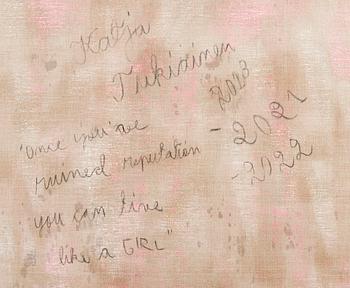 Katja
Tukiainen
2013
- 2021
- 2022
"Once you've
ruined reputation
you can live
like a GRL"